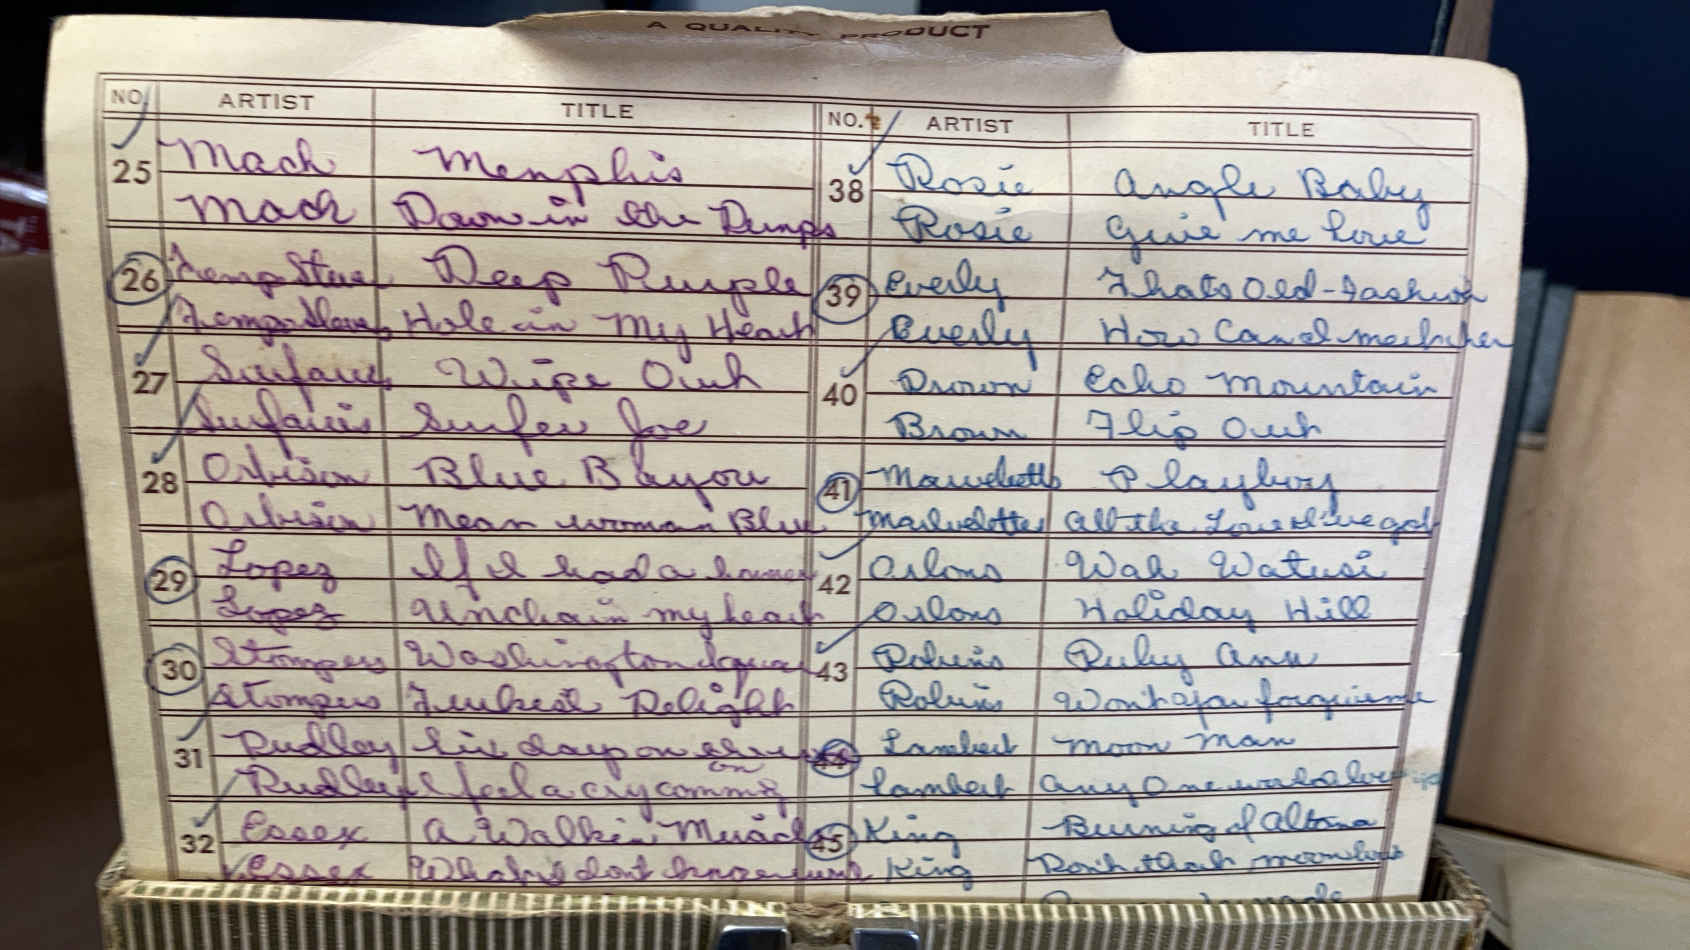 A QUALITY PRODUCT
NO. ARTIST TITLE
25 Mack Memphis
Mack Down in the Dumps
26 Temp + Stevens Deep Purple
Hole in My Heart
27 Surfaris Wipe Out
Surfaris Surfer Joe
28 Orbison Blue Bayou
Orbison Mean woman Blue
29 Lopez If I had a hammer
Lopez Unchain my heart
30 Stompers Washington Square
Stompers Turkish Delight
31 Dudley six days on
Dudley I feel a cry coming on
32 Essex A Walkin Miracle
Essex What I dont know
NO. ARTIST TITLE
38 Rosie Angle Baby
Rosie Give me love
39 Everly Thats Old-Fashion
Everly How Can I meet her
40 Brown Echo Mountain
Brown Flip Out
41 Marvelettes Playboy
Marvelettes All the Love I've got
42 Orlons Wah Watusi
Orlons Holiday Hill
43 Robins Ruby Ann
Robins Wont you forgive me
44 Lambert Moon Man
Lambert Any One
45 King Burning of Atlanta
King Dont that moon